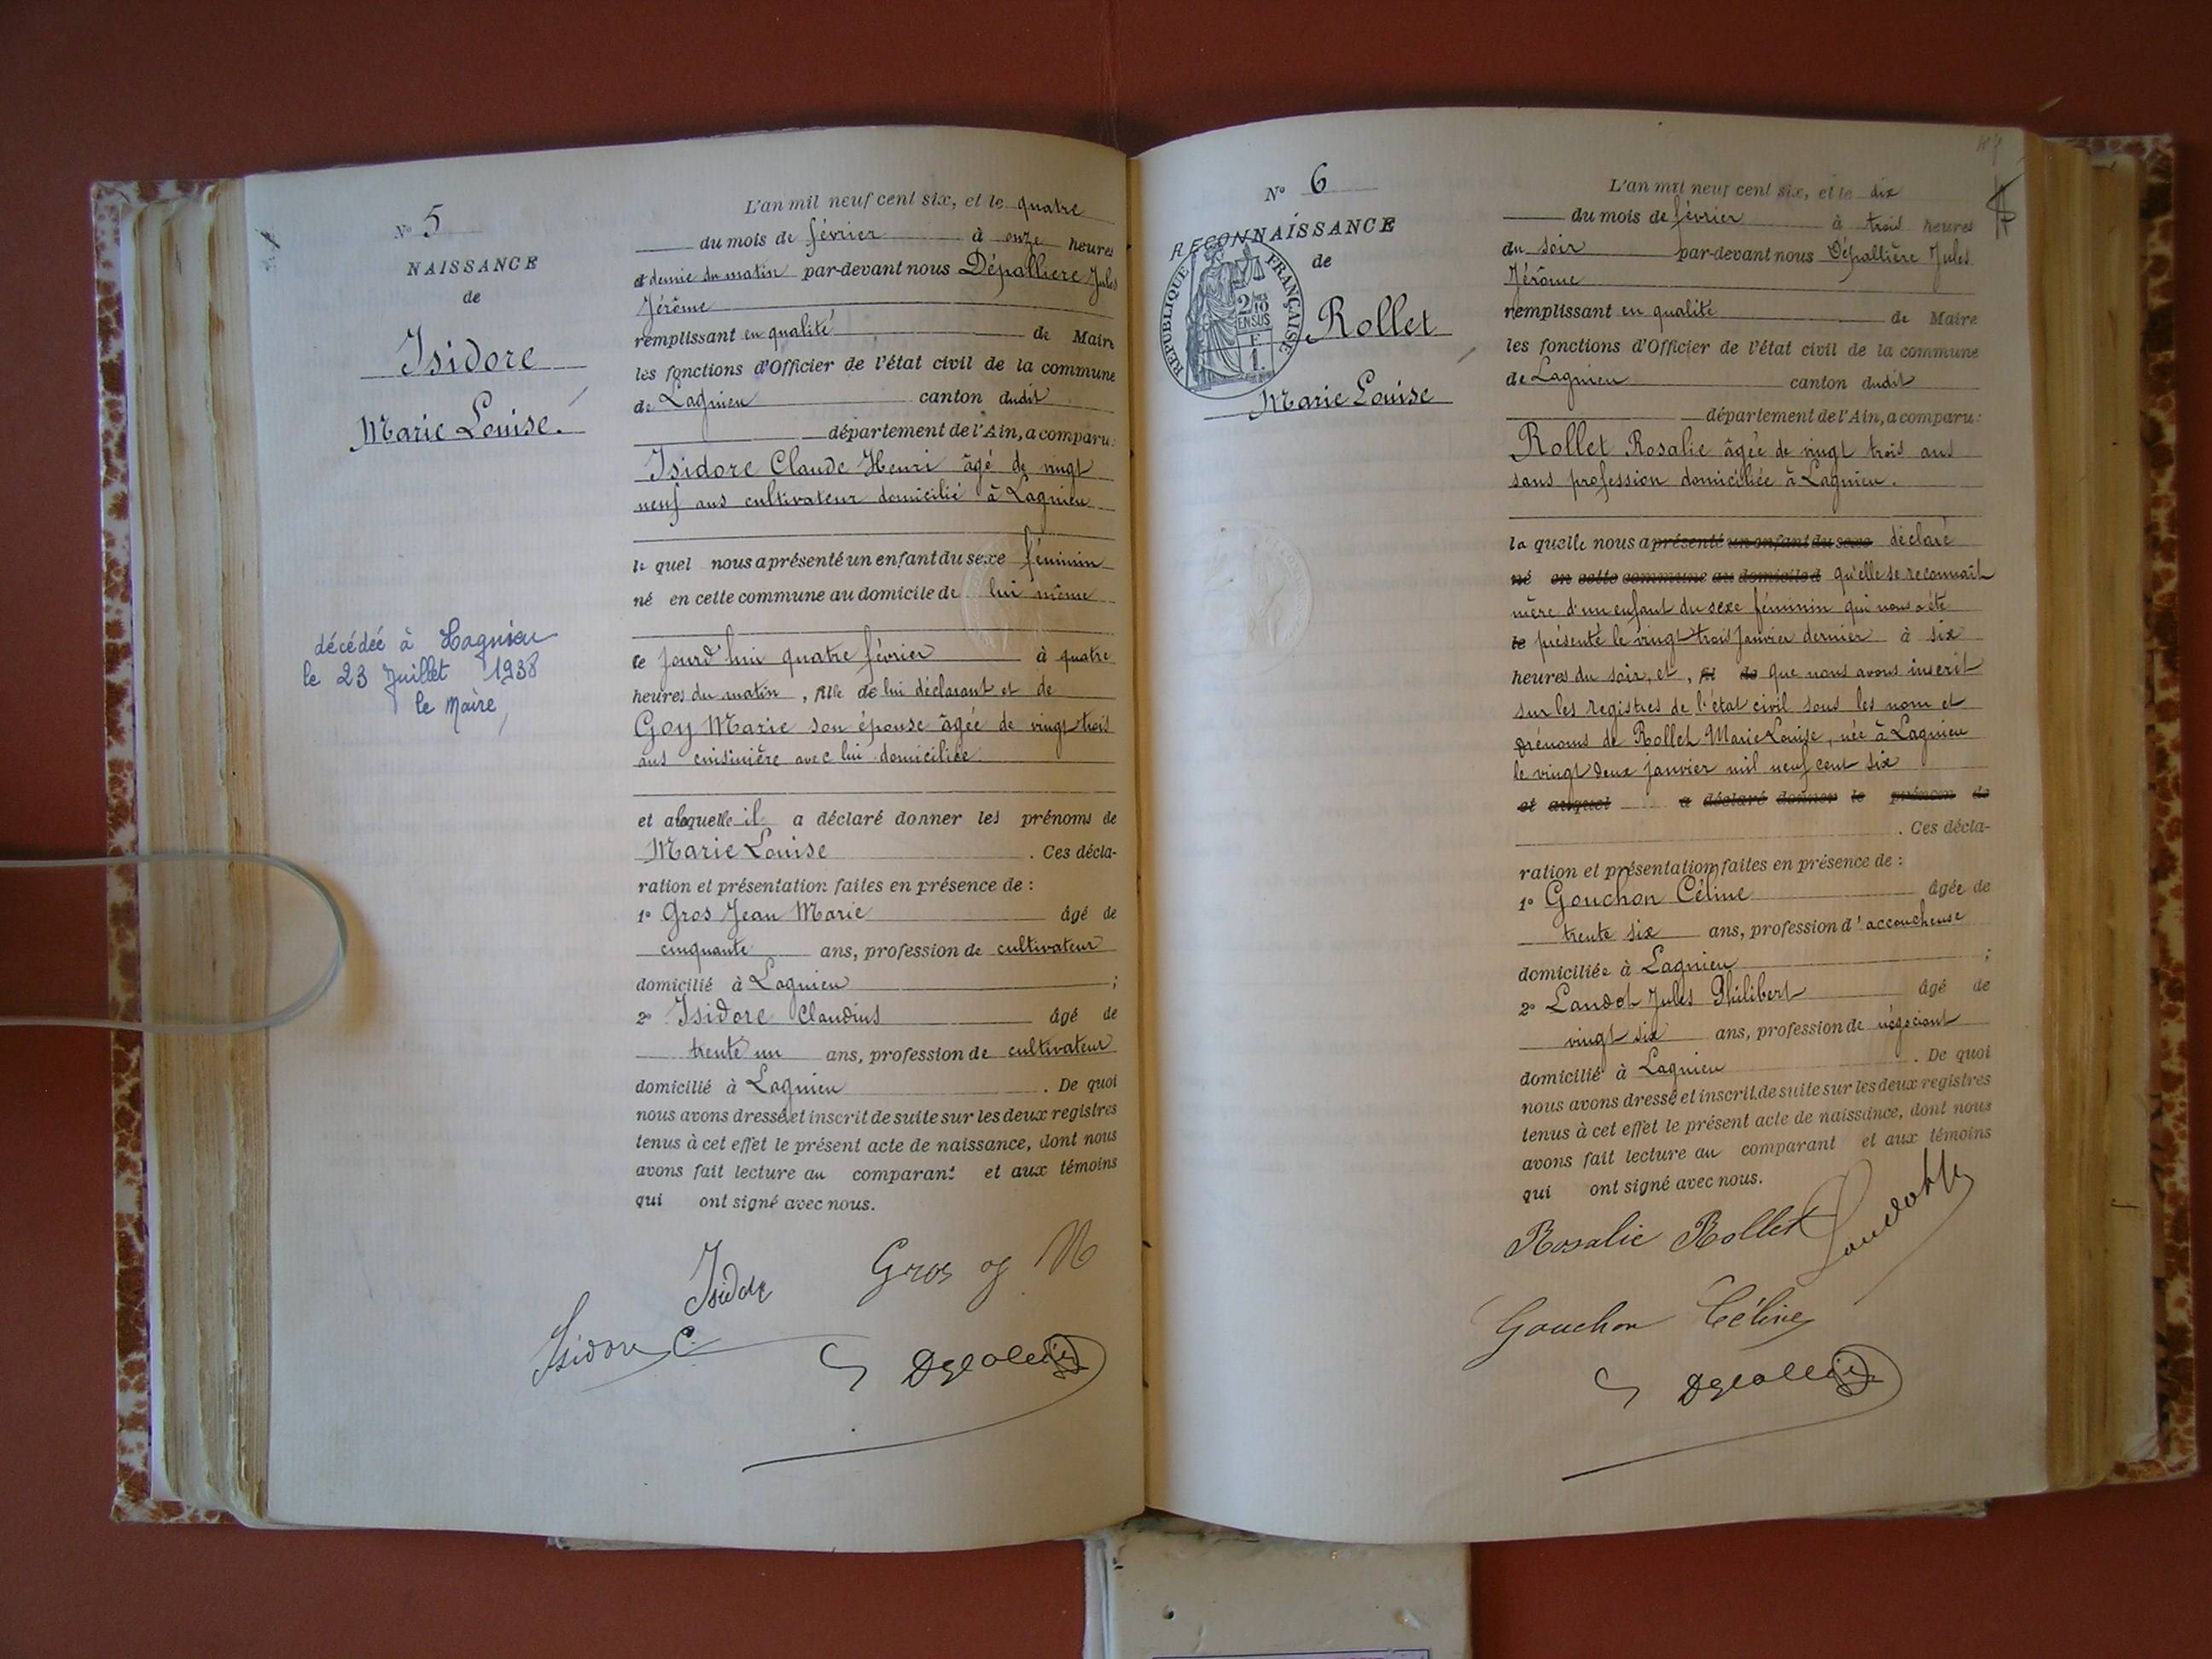 N° 5
NAISSANCE
de
Isidore
Marie Louise.
décédée à Lagnieu
le 23 Juillet 1938
le Maire,
L'an mil neuf cent six, et le quatre
du mois de février à onze heures
et demie du matin par-devant nous Dépallière Jules
Jérôme
remplissant en qualité de Maire
les fonctions d'Officier de l'état civil de la commune
de Lagnieu canton dudit
département de l'Ain, a comparu:
Isidore Claude Henri âgé de vingt
neuf ans cultivateur domicilié à Lagnieu
le quel nous a présenté un enfant du sexe féminin
né en cette commune au domicile de lui même
ce jourd'hui quatre février à quatre
heures du matin, fille de lui déclarant et de
Goy Marie son épouse âgée de vingt trois
ans cuisinière avec lui domiciliée.
et a laquelle il a déclaré donner les prénoms de
Marie Louise. Ces décla-
ration et présentation faites en présence de :
1° Gros Jean Marie âgé de
cinquante ans, profession de cultivateur
domicilié à Lagnieu ;
2° Isidore Claudius âgé de
trente un ans, profession de cultivateur
domicilié à Lagnieu. De quoi
nous avons dressé et inscrit de suite sur les deux registres
tenus à cet effet le présent acte de naissance, dont nous
avons fait lecture au comparant et aux témoins
qui ont signé avec nous.
Isidore Gros J M
Isidore C.
N° 6
RECONNAISSANCE
de
REPUBLIQUE FRANÇAISE
2/10
EN SUS
Rollet
Marie Louise
L'an mil neuf cent six, et le dix
du mois de février à trois heures
du soir par-devant nous Dépallière Jules
Jérôme
remplissant en qualité de Maire
les fonctions d'Officier de l'état civil de la commune
de Lagnieu canton dudit
département de l'Ain, a comparu:
Rollet Rosalie âgée de vingt trois ans
sans profession domiciliée à Lagnieu.
la quelle nous a présenté un enfant du sexe déclaré
né en cette commune au domicile d qu'elle se reconnaît
mère d'un enfant du sexe féminin qui nous a été
le présenté le vingt trois Janvier dernier à six
heures du soir, et, fil de que nous avons inscrit
sur les registres de l'état civil sous les nom et
prénoms de Rollet Marie Louise, née à Lagnieu
le vingt deux janvier mil neuf cent six
et auquel a déclaré donner le prénom de
. Ces décla-
ration et présentation faites en présence de :
1° Gouchon Céline âgée de
trente six ans, profession d'accoucheuse
domiciliée à Lagnieu ;
2° Landot Jules Philibert âgé de
vingt six ans, profession de négociant
domicilié à Lagnieu. De quoi
nous avons dressé et inscrit de suite sur les deux registres
tenus à cet effet le présent acte de naissance, dont nous
avons fait lecture au comparant et aux témoins
qui ont signé avec nous.
Rosalie Rollet Landot
Gouchon Céline